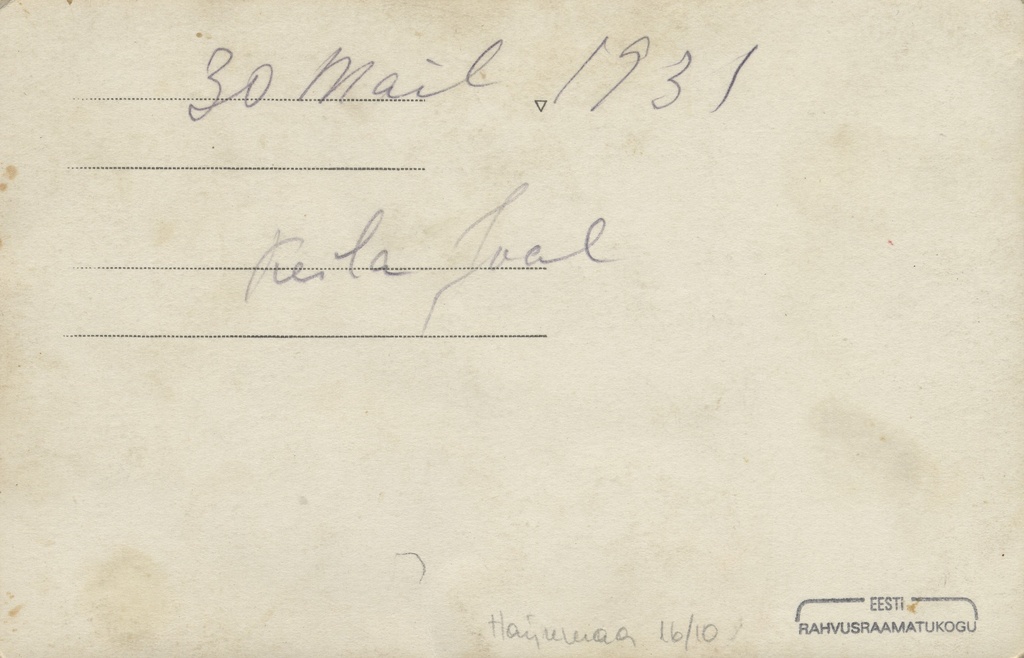 30 Mail 1931
Keila Joal
Harjumaa 16/10
EESTI
RAHVUSRAAMATUKOGU